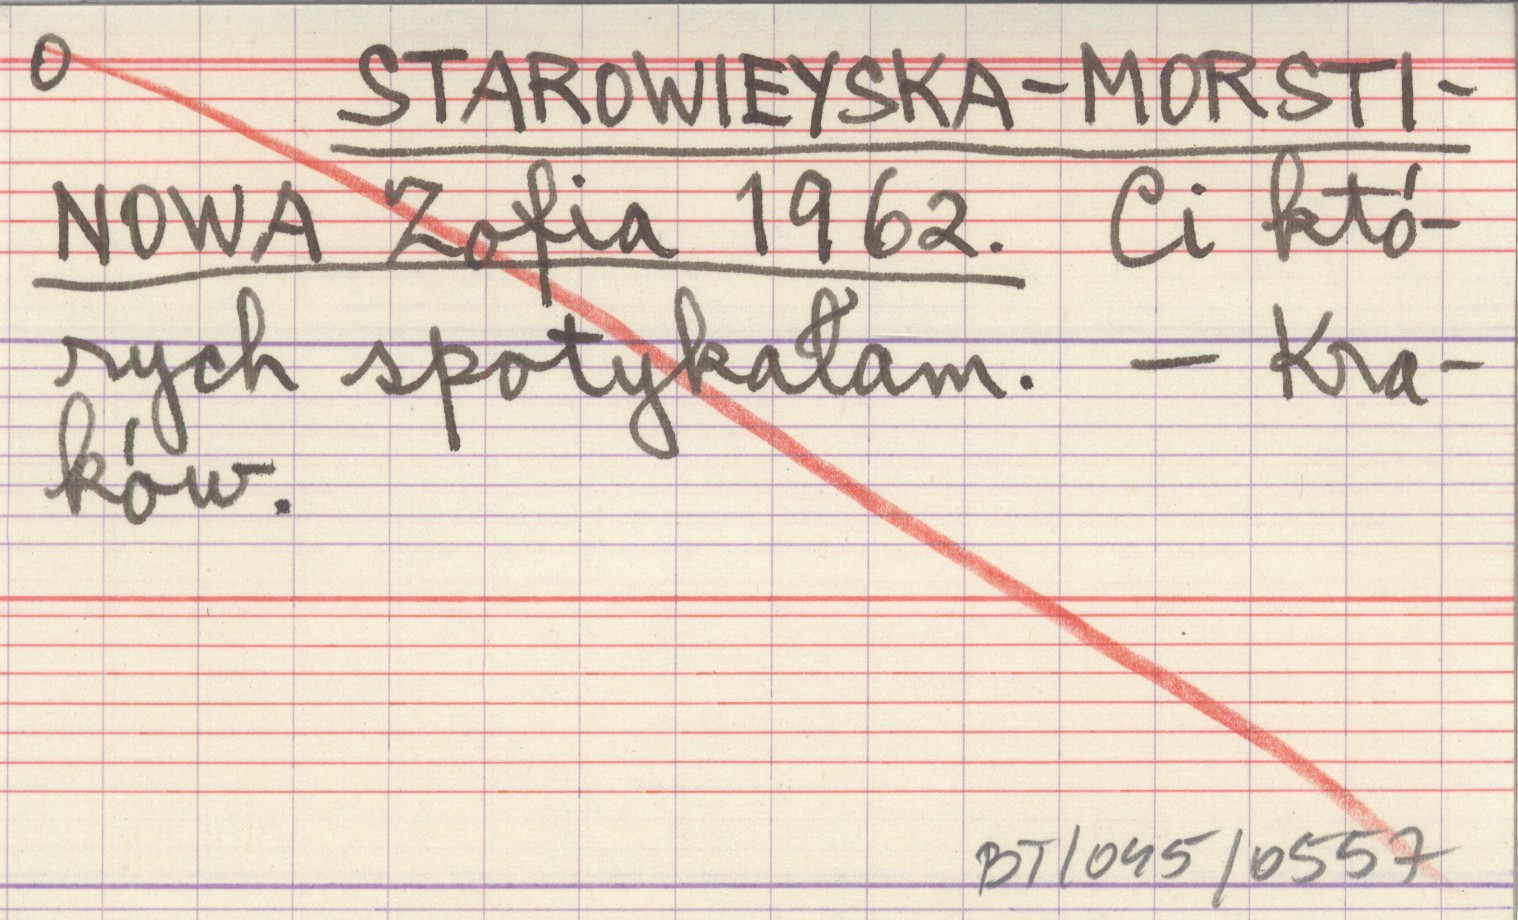 O STAROWIEYSKA-MORSTI-
NOWA Zofia 1962. Ci któ-
rych spotykałam. – Kra-
ków.
BT/045/0557